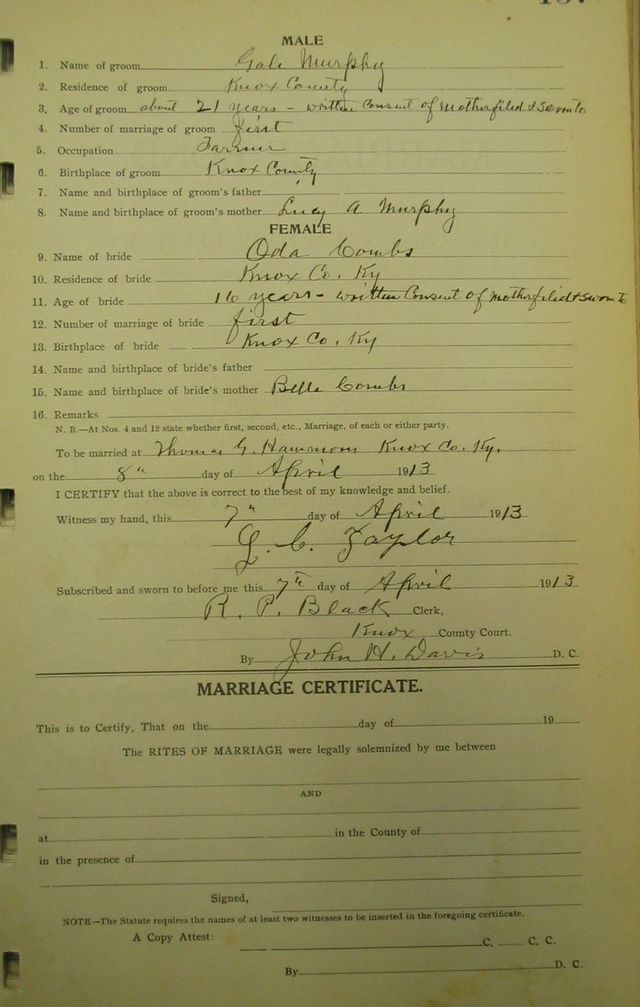 MALE
1. Name of groom Gale Murphy
2. Residence of groom Knox County
3. Age of groom about 21 years - written Consent of Mother filed & sworn to
4. Number of marriage of groom first
5. Occupation Farmer
6. Birthplace of groom Knox County
7. Name and birthplace of groom's father
8. Name and birthplace of groom's mother Lucy A Murphy
FEMALE
9. Name of bride Oda Combs
10. Residence of bride Knox Co. Ky
11. Age of bride 16 years - written Consent of Mother filed & sworn to
12. Number of marriage of bride first
13. Birthplace of bride Knox Co. Ky
14. Name and birthplace of bride's father
15. Name and birthplace of bride's mother Belle Combs
16. Remarks
N. B.—At Nos. 4 and 12 state whether first, second, etc., Marriage, of each or either party.
To be married at Thomas G. Hammons Knox Co. Ky.
on the 8th day of April 1913
I CERTIFY that the above is correct to the best of my knowledge and belief.
Witness my hand, this 7th day of April 1913
L. C. Taylor
Subscribed and sworn to before me this 7th day of April 1913
R. P. Black Clerk,
Knox County Court.
By John H. Davis D. C.
MARRIAGE CERTIFICATE.
This is to Certify, That on the day of 19
The RITES OF MARRIAGE were legally solemnized by me between
AND
at in the County of
in the presence of
Signed,
NOTE—The Statute requires the names of at least two witnesses to be inserted in the foregoing certificate.
A Copy Attest:
C. C. C.
By D. C.